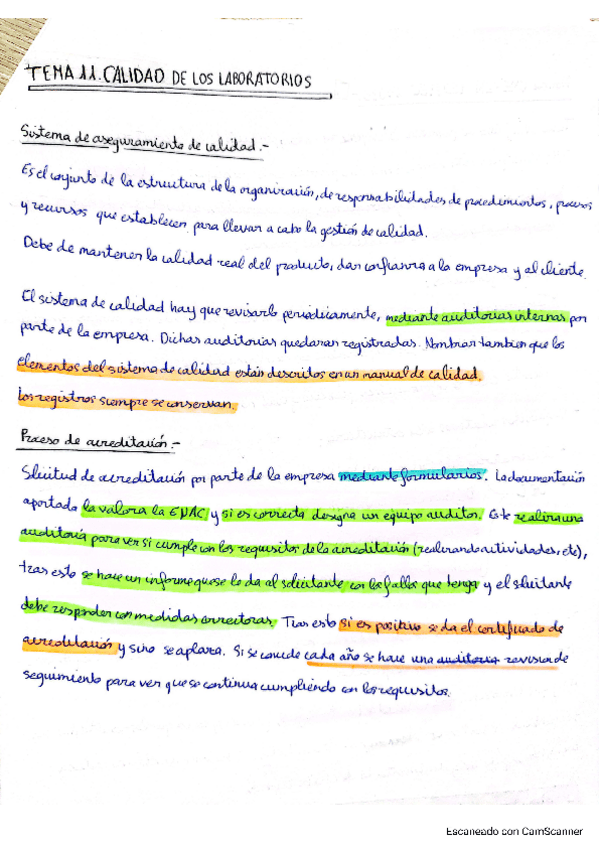 TEMA 11. CALIDAD DE LOS LABORATORIOS
Sistema de aseguramiento de calidad.-
Es el conjunto de la estructura de la organización, de responsabilidades de procedimientos, procesos
y recursos que establecen para llevar a cabo la gestión de calidad.
Debe de mantener la calidad real del producto, dar confianza a la empresa y al cliente.
El sistema de calidad hay que revisarlo periódicamente, mediante auditorias internas por
parte de la empresa. Dichas auditorias quedaran registradas. Nombrar tambien que los
elementos del sistema de calidad están descritos en un manual de calidad.
Los registros siempre se conservan.
Proceso de acreditación.-
Solicitud de acreditación por parte de la empresa mediante formularios. La documentación
aportada la valora la ENAC y si es correcta designa un equipo auditor. Este realiza una
auditoría para ver si cumple con los requisitos de la acreditación (realizando actividades, etc),
tras esto se hace un informe que se le da al solicitante con los fallos que tenga y el solicitante
debe responder con medidas correctoras. Tras esto si es positivo se da el certificado de
acreditación y sino se aplaza. Si se concede cada año se hace una auditoria revision de
seguimiento para ver que se continua cumpliendo con los requisitos.
Escaneado con CamScanner